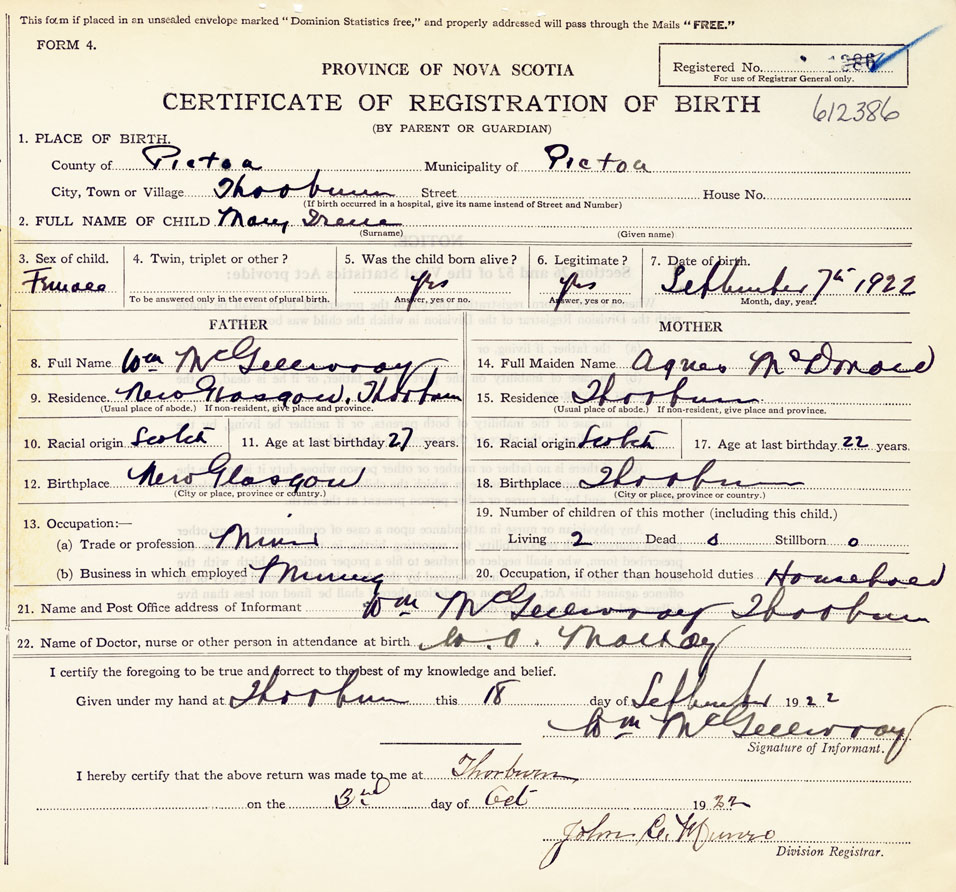 This form if placed in an unsealed envelope marked "Dominion Statistics free," and properly addressed will pass through the Mails "FREE."
FORM 4.
Registered No. 386
For use of Registrar General only.
PROVINCE OF NOVA SCOTIA
CERTIFICATE OF REGISTRATION OF BIRTH
612386
(BY PARENT OR GUARDIAN)
1. PLACE OF BIRTH.
County of Pictou Municipality of Pictou
City, Town or Village Thorburn Street House No.
(If birth occurred in a hospital, give its name instead of Street and Number)
2. FULL NAME OF CHILD Mary Irene
(Surname) (Given name)
3. Sex of child. 4. Twin, triplet or other? 5. Was the child born alive? 6. Legitimate? 7. Date of birth.
Female yes yes September 7th 1922
To be answered only in the event of plural birth. Answer, yes or no. Answer, yes or no. Month, day, year.
FATHER MOTHER
8. Full Name Wm McGillivray 14. Full Maiden Name Agnes McDonald
9. Residence New Glasgow. Thorburn 15. Residence Thorburn
(Usual place of abode.) If non-resident, give place and province. (Usual place of abode.) If non-resident, give place and province.
10. Racial origin Scotch 11. Age at last birthday 27 years. 16. Racial origin Scotch 17. Age at last birthday 22 years.
12. Birthplace New Glasgow 18. Birthplace Thorburn
(City or place, province or country.) (City or place, province or country.)
13. Occupation:— 19. Number of children of this mother (including this child.)
(a) Trade or profession Miner Living 2 Dead 0 Stillborn 0
(b) Business in which employed Mining 20. Occupation, if other than household duties Household
21. Name and Post Office address of Informant Wm McGillivray Thorburn
22. Name of Doctor, nurse or other person in attendance at birth
I certify the foregoing to be true and correct to the best of my knowledge and belief.
Given under my hand at Thorburn this 18 day of September 1922
Wm McGillivray
Signature of Informant.
I hereby certify that the above return was made to me at Thorburn
on the 3rd day of Oct 1922
John C. Munro
Division Registrar.